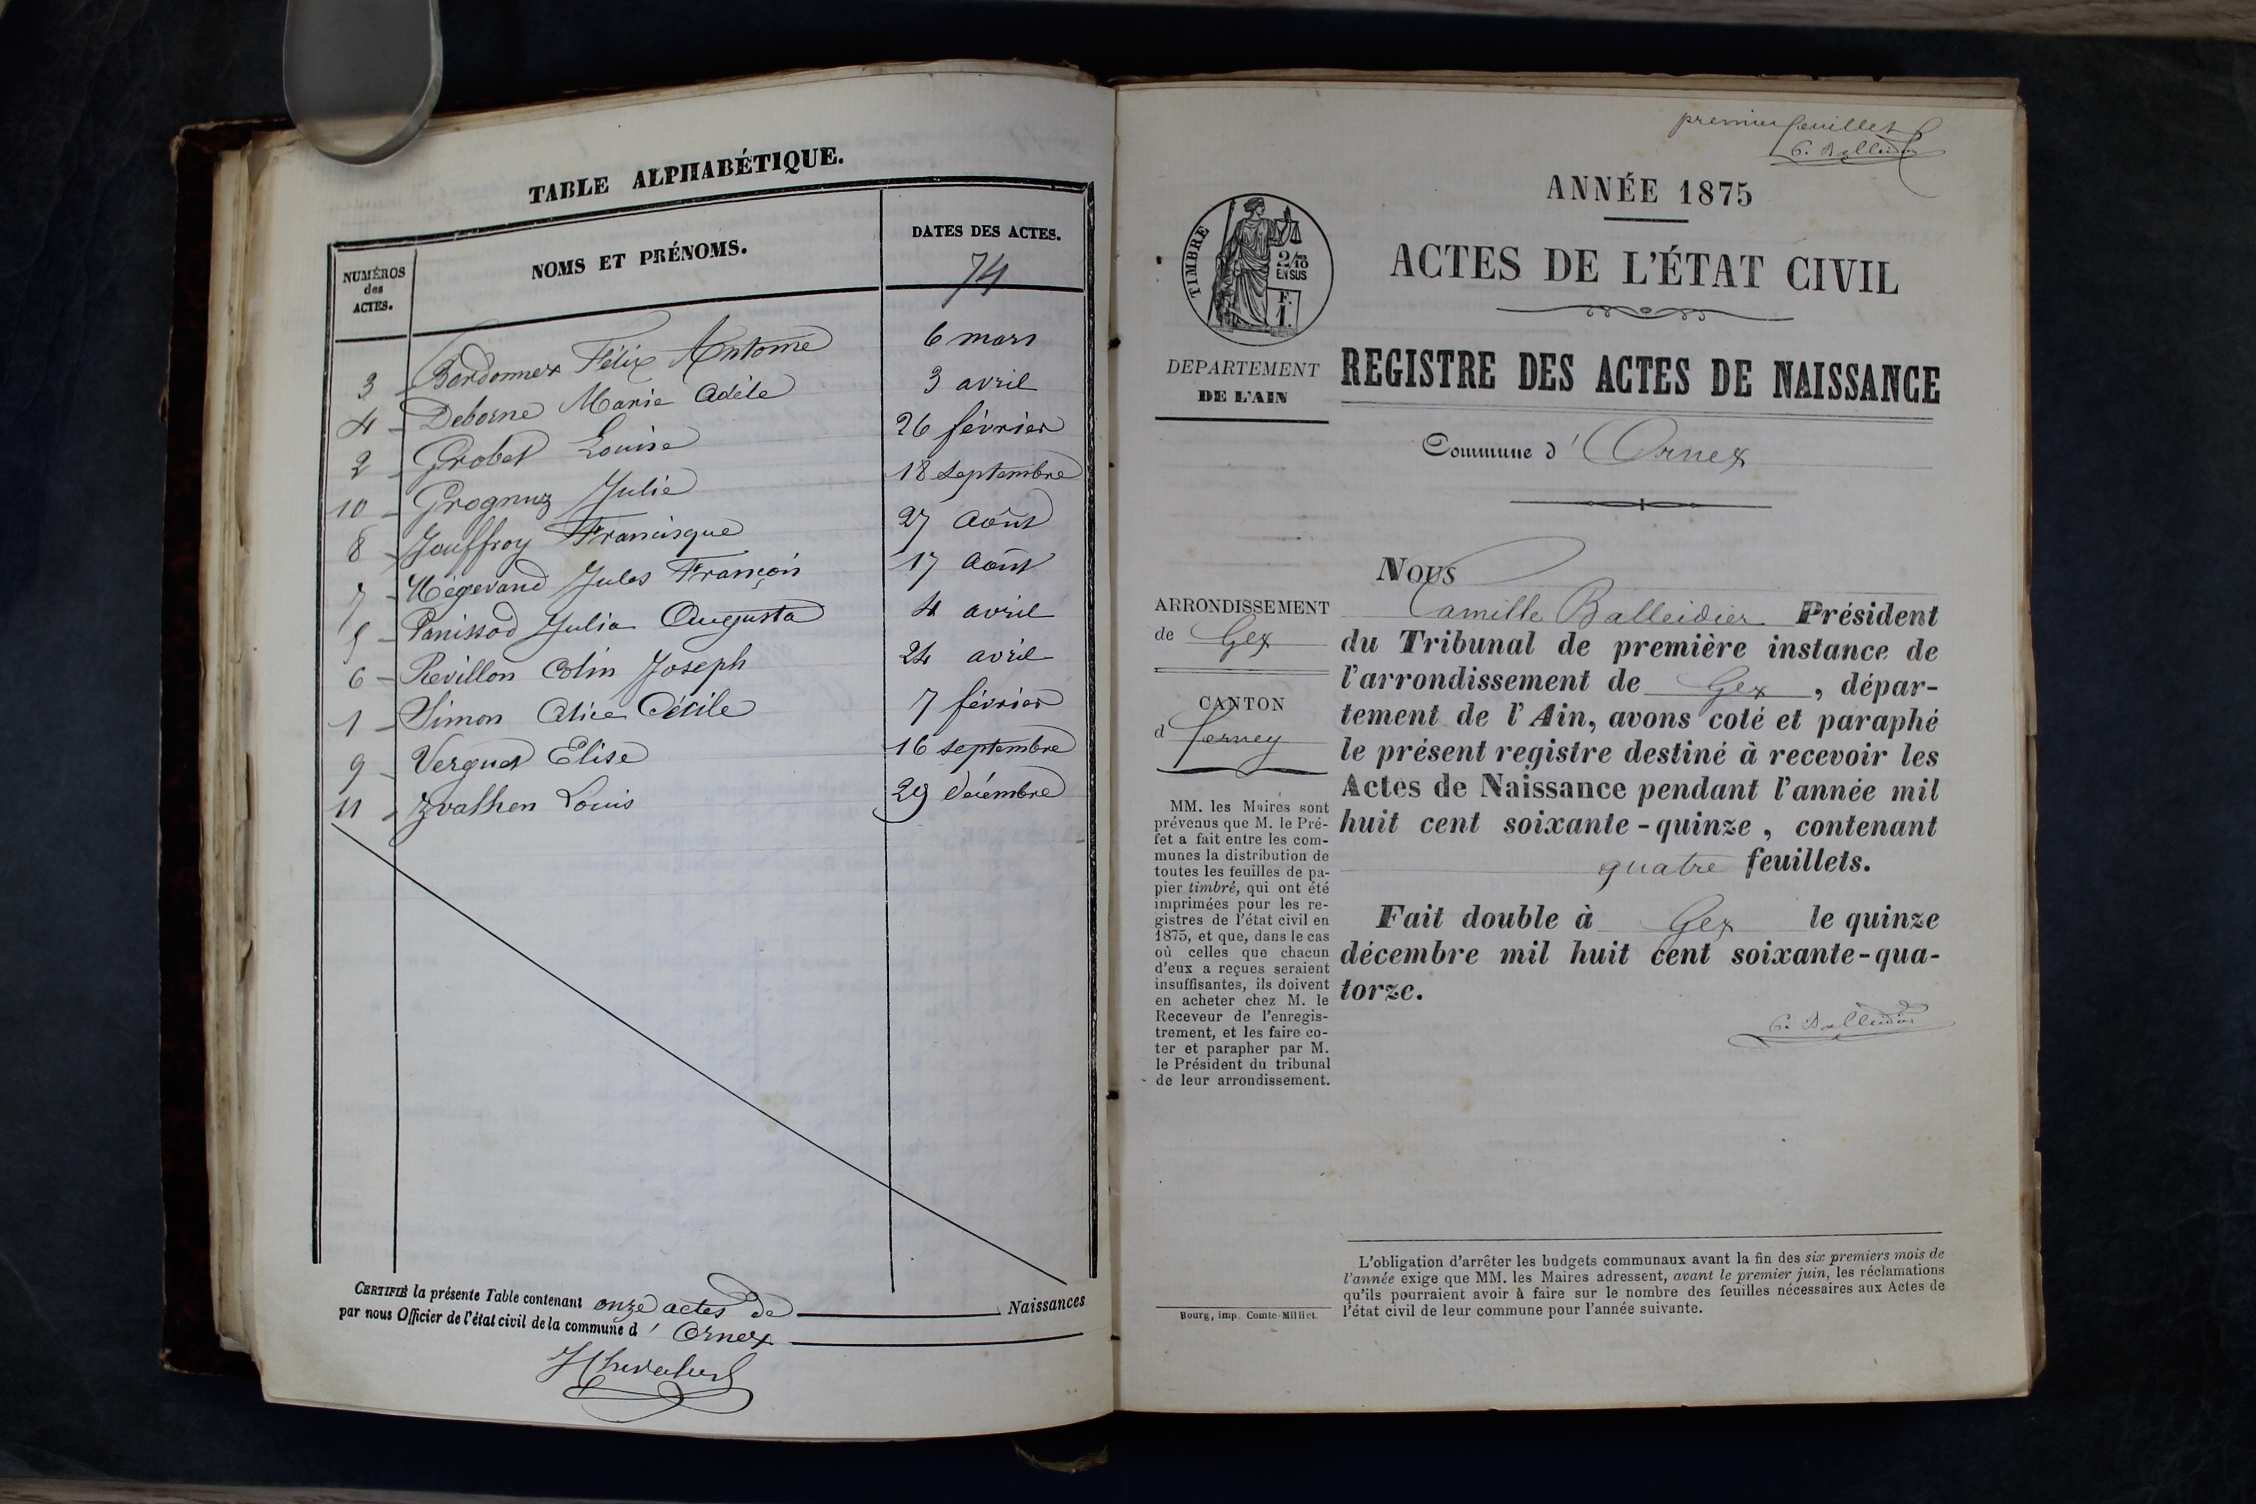 TABLE ALPHABÉTIQUE.
NUMÉROS
des
ACTES.
NOMS ET PRÉNOMS.
DATES DES ACTES.
74
3 Bordonnex Félix Antome 6 mars
4 Deborne Marie Adèle 3 avril
2 Grobet Louise 26 février
10 Grognuz Julie 18 septembre
8 Jouffroy Francisque 27 Août
7 Mégevand Jules François 17 Août
5 Panissod Julia Augusta 4 avril
6 Revillon Colin Joseph 24 avril
1 Simon Alice Cécile 7 février
9 Verguet Elise 16 septembre
11 Zvathen Louis 29 décembre
CERTIFIÉ la présente Table contenant onze actes de Naissances
par nous Officier de l'état civil de la commune d' Ornex
premier feuillet
C. Balleidier
ANNÉE 1875
ACTES DE L'ÉTAT CIVIL
TIMBRE
2/10
EN SUS
F.
1.
DEPARTEMENT
DE L'AIN
REGISTRE DES ACTES DE NAISSANCE
Commune d' Ornex
ARRONDISSEMENT
de Gex
CANTON
d Ferney
MM. les Maires sont
prévenus que M. le Pré-
fet a fait entre les com-
munes la distribution de
toutes les feuilles de pa-
pier timbré, qui ont été
imprimées pour les re-
gistres de l'état civil en
1875, et que, dans le cas
où celles que chacun
d'eux a reçues seraient
insuffisantes, ils doivent
en acheter chez M. le
Receveur de l'enregis-
trement, et les faire co-
ter et parapher par M.
le Président du tribunal
de leur arrondissement.
Nous
Camille Balleidier Président
du Tribunal de première instance de
l'arrondissement de Gex, dépar-
tement de l'Ain, avons coté et paraphé
le présent registre destiné à recevoir les
Actes de Naissance pendant l'année mil
huit cent soixante-quinze, contenant
quatre feuillets.
Fait double à Gex le quinze
décembre mil huit cent soixante-qua-
torze.
C. Balleidier
L'obligation d'arrêter les budgets communaux avant la fin des six premiers mois de
l'année exige que MM. les Maires adressent, avant le premier juin, les réclamations
qu'ils pourraient avoir à faire sur le nombre des feuilles nécessaires aux Actes de
l'état civil de leur commune pour l'année suivante.
Bourg, imp. Comte-Milliet.